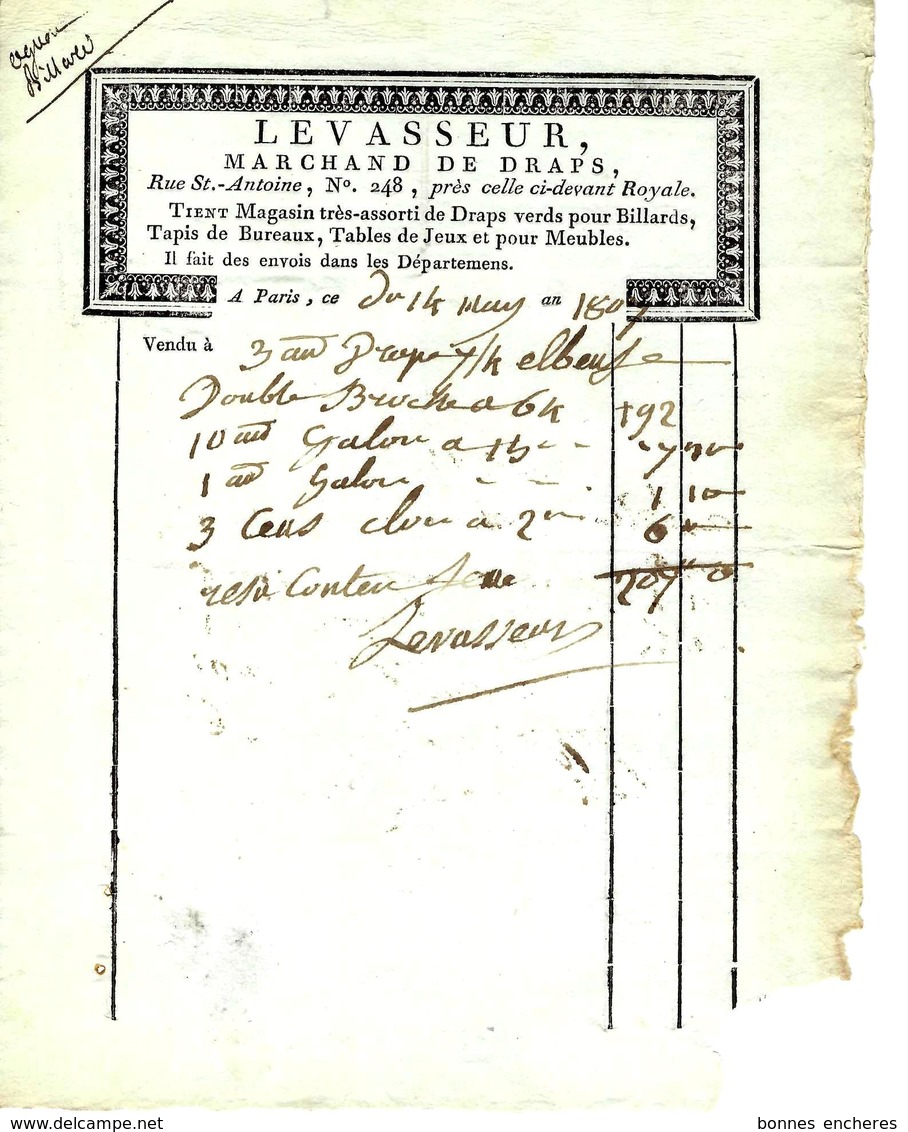 Billard
LEVASSEUR,
MARCHAND DE DRAPS,
Rue St.-Antoine, No. 248, près celle ci-devant Royale.
TIENT Magasin très-assorti de Draps verds pour Billards,
Tapis de Bureaux, Tables de Jeux et pour Meubles.
Il fait des envois dans les Départemens.
A Paris, ce Du 14 mars an 1807
Vendu à 3 au Drap 7/4 elbeuf
Double Broche a 64 192
10 au Galon a 15 7 10
1 au Galon 1 10
3 Cens clou a 2 6
207 0
Levasseur
bonnes encheres